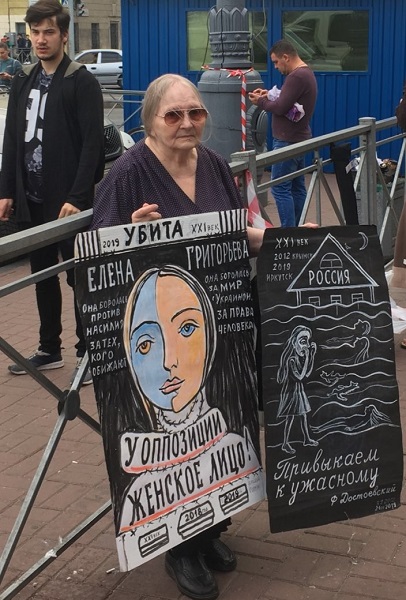 2019 УБИТА XXI век
ЕЛЕНА ГРИГОРЬЕВА
ОНА БОРОЛАСЬ
ПРОТИВ
НАСИЛИЯ
ЗА ТЕХ,
КОГО
ОБИЖАЮТ
ОНА БОРОЛАСЬ
ЗА МИР
С УКРАИНОЙ,
ЗА ПРАВА
ЧЕЛОВЕКА
У ОППОЗИЦИИ
ЖЕНСКОЕ ЛИЦО!
XXI ВЕК
2012 КРЫМСК
2019
ИРКУТСК
РОССИЯ
Привыкаем
к ужасному
Ф. Достоевский